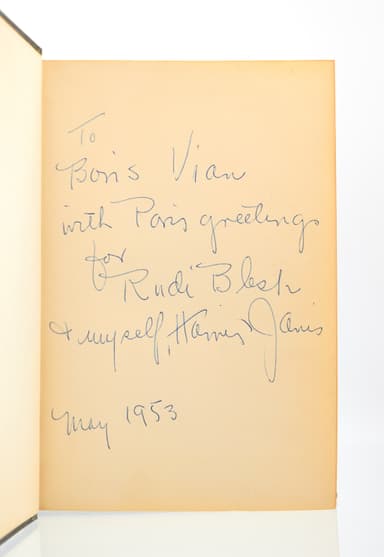 To
Boris Vian
with Paris greetings
for
Rudi Blesh
& myself, Harriet Janis
May 1953